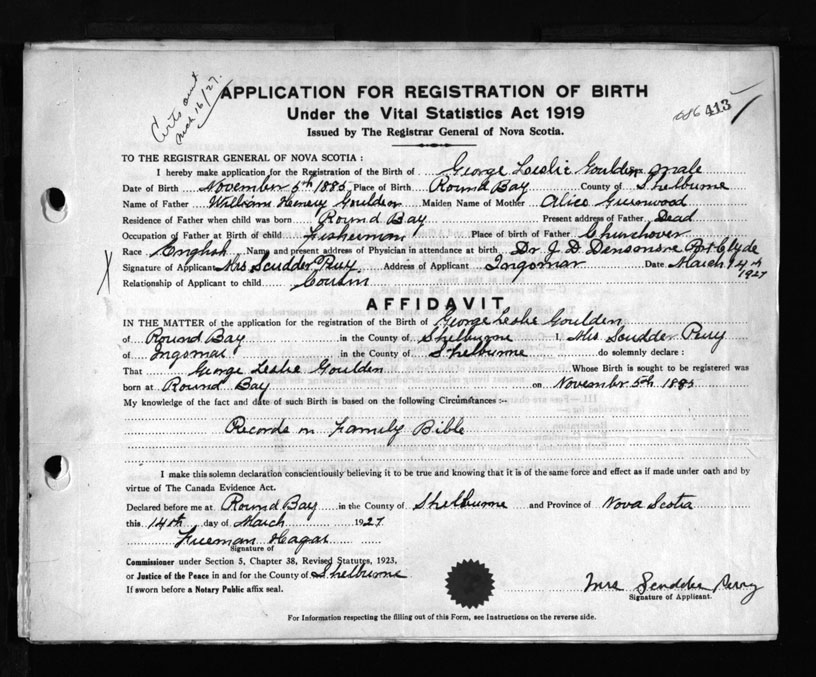 Certs out
Mch 16/27.
APPLICATION FOR REGISTRATION OF BIRTH
Under the Vital Statistics Act 1919
Issued by The Registrar General of Nova Scotia.
686 413
TO THE REGISTRAR GENERAL OF NOVA SCOTIA :
I hereby make application for the Registration of the Birth of George Leslie Goulden male
Date of Birth November 5th 1885 Place of Birth Round Bay County of Shelburne
Name of Father William Henery Goulden Maiden Name of Mother Alice Guernwood
Residence of Father when child was born Round Bay Present address of Father Dead
Occupation of Father at Birth of child Fisherman Place of birth of Father Churchover
Race English Name and present address of Physician in attendance at birth Dr J. D. Densmore Port Clyde
X Signature of Applicant Mrs Scudder Perry Address of Applicant Ingomar Date March 14th 1927
Relationship of Applicant to child Cousin
AFFIDAVIT
IN THE MATTER of the application for the registration of the Birth of George Leslie Goulden
of Round Bay in the County of Shelburne I, Mrs Scudder Perry
of Ingomar in the County of Shelburne do solemnly declare :
That George Leslie Goulden Whose Birth is sought to be registered was
born at Round Bay on November 5th 1885
My knowledge of the fact and date of such Birth is based on the following Circumstances :–
Records in Family Bible
I make this solemn declaration conscientiously believing it to be true and knowing that it is of the same force and effect as if made under oath and by
virtue of The Canada Evidence Act.
Declared before me at Round Bay in the County of Shelburne and Province of Nova Scotia
this 14th day of March 1927
Freeman Hagar
Signature of
Commissioner under Section 5, Chapter 38, Revised Statutes, 1923,
or Justice of the Peace in and for the County of Shelburne
If sworn before a Notary Public affix seal.
Mrs Scudder Perry
Signature of Applicant.
For Information respecting the filling out of this Form, see Instructions on the reverse side.